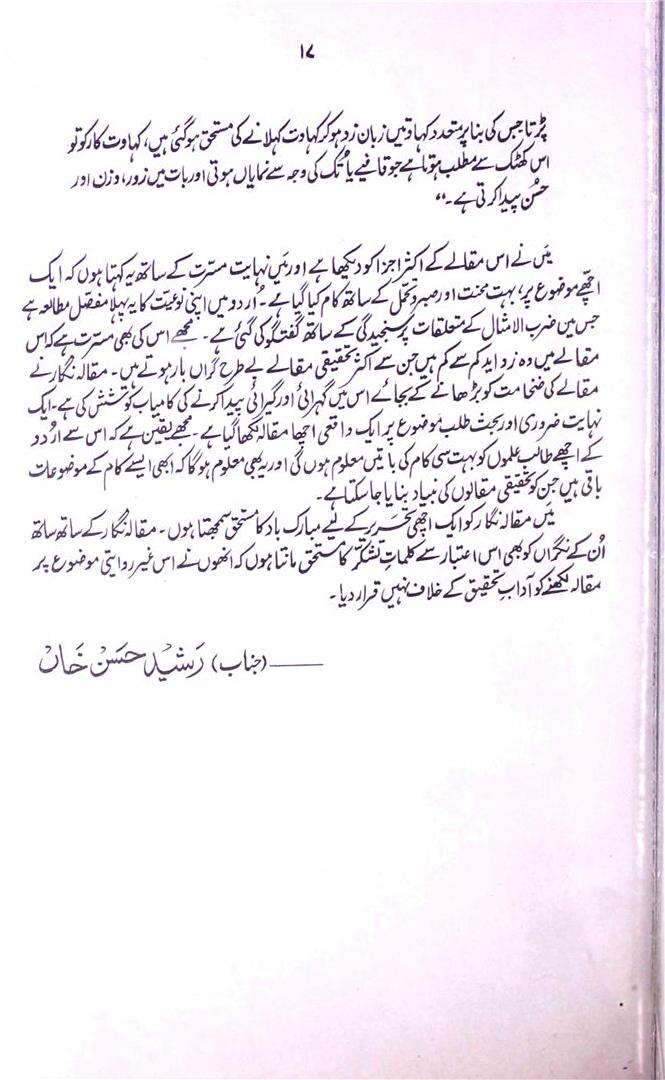 ۱۷
پڑتا جس کی بنا پر متعدد کہاوتیں زبان زد ہو کر کہاوت کہلانے کی مستحق ہوگئی ہیں، کہاوت کار کو تو
اس کھٹک سے مطلب ہوتا ہے جو قافیے یا تُک کی وجہ سے نمایاں ہوتی اور بات میں زور، وزن اور
حُسن پیدا کرتی ہے۔"
میں نے اس مقالے کے اکثر اجزا کو دیکھا ہے اور میں نہایت مسرّت کے ساتھ یہ کہتا ہوں کہ ایک
اچھے موضوع پر، بہت محنت اور صبر و تحمّل کے ساتھ کام کیا گیا ہے۔ اُردو میں اپنی نوعیّت کا یہ پہلا مفصّل مطالعہ ہے
جس میں ضرب الامثال کے متعلقات پر سنجیدگی کے ساتھ گفتگو کی گئی ہے۔ مجھے اس کی بھی مسرت ہے کہ اس
مقالے میں وہ زواید کم سے کم ہیں جن سے اکثر تحقیقی مقالے بے طرح گراں بار ہوتے ہیں۔ مقالہ نگار نے
مقالے کی ضخامت کو بڑھانے کے بجائے اس میں گہرائی اور گیرائی پیدا کرنے کی کامیاب کوشش کی ہے۔ ایک
نہایت ضروری اور بحث طلب موضوع پر ایک واقعی اچھا مقالہ لکھا گیا ہے۔ مجھے یقین ہے کہ اس سے اُردو
کے اچھے طالب علموں کو بہت سی کام کی باتیں معلوم ہوں گی اور یہ بھی معلوم ہوگا کہ ابھی ایسے کام کے موضوعات
باقی ہیں جن کو تحقیقی مقالوں کی بنیاد بنایا جاسکتا ہے۔
میں مقالہ نگار کو ایک اچھی تحریر کے لیے مبارک باد کا مستحق سمجھتا ہوں۔ مقالہ نگار کے ساتھ ساتھ
اُن کے نگراں کو بھی اس اعتبار سے کلماتِ تشکّر کا مستحق مانتا ہوں کہ انھوں نے اس غیر روایتی موضوع پر
مقالہ لکھنے کو آدابِ تحقیق کے خلاف نہیں قرار دیا۔
——— (جناب) رشید حسن خاں